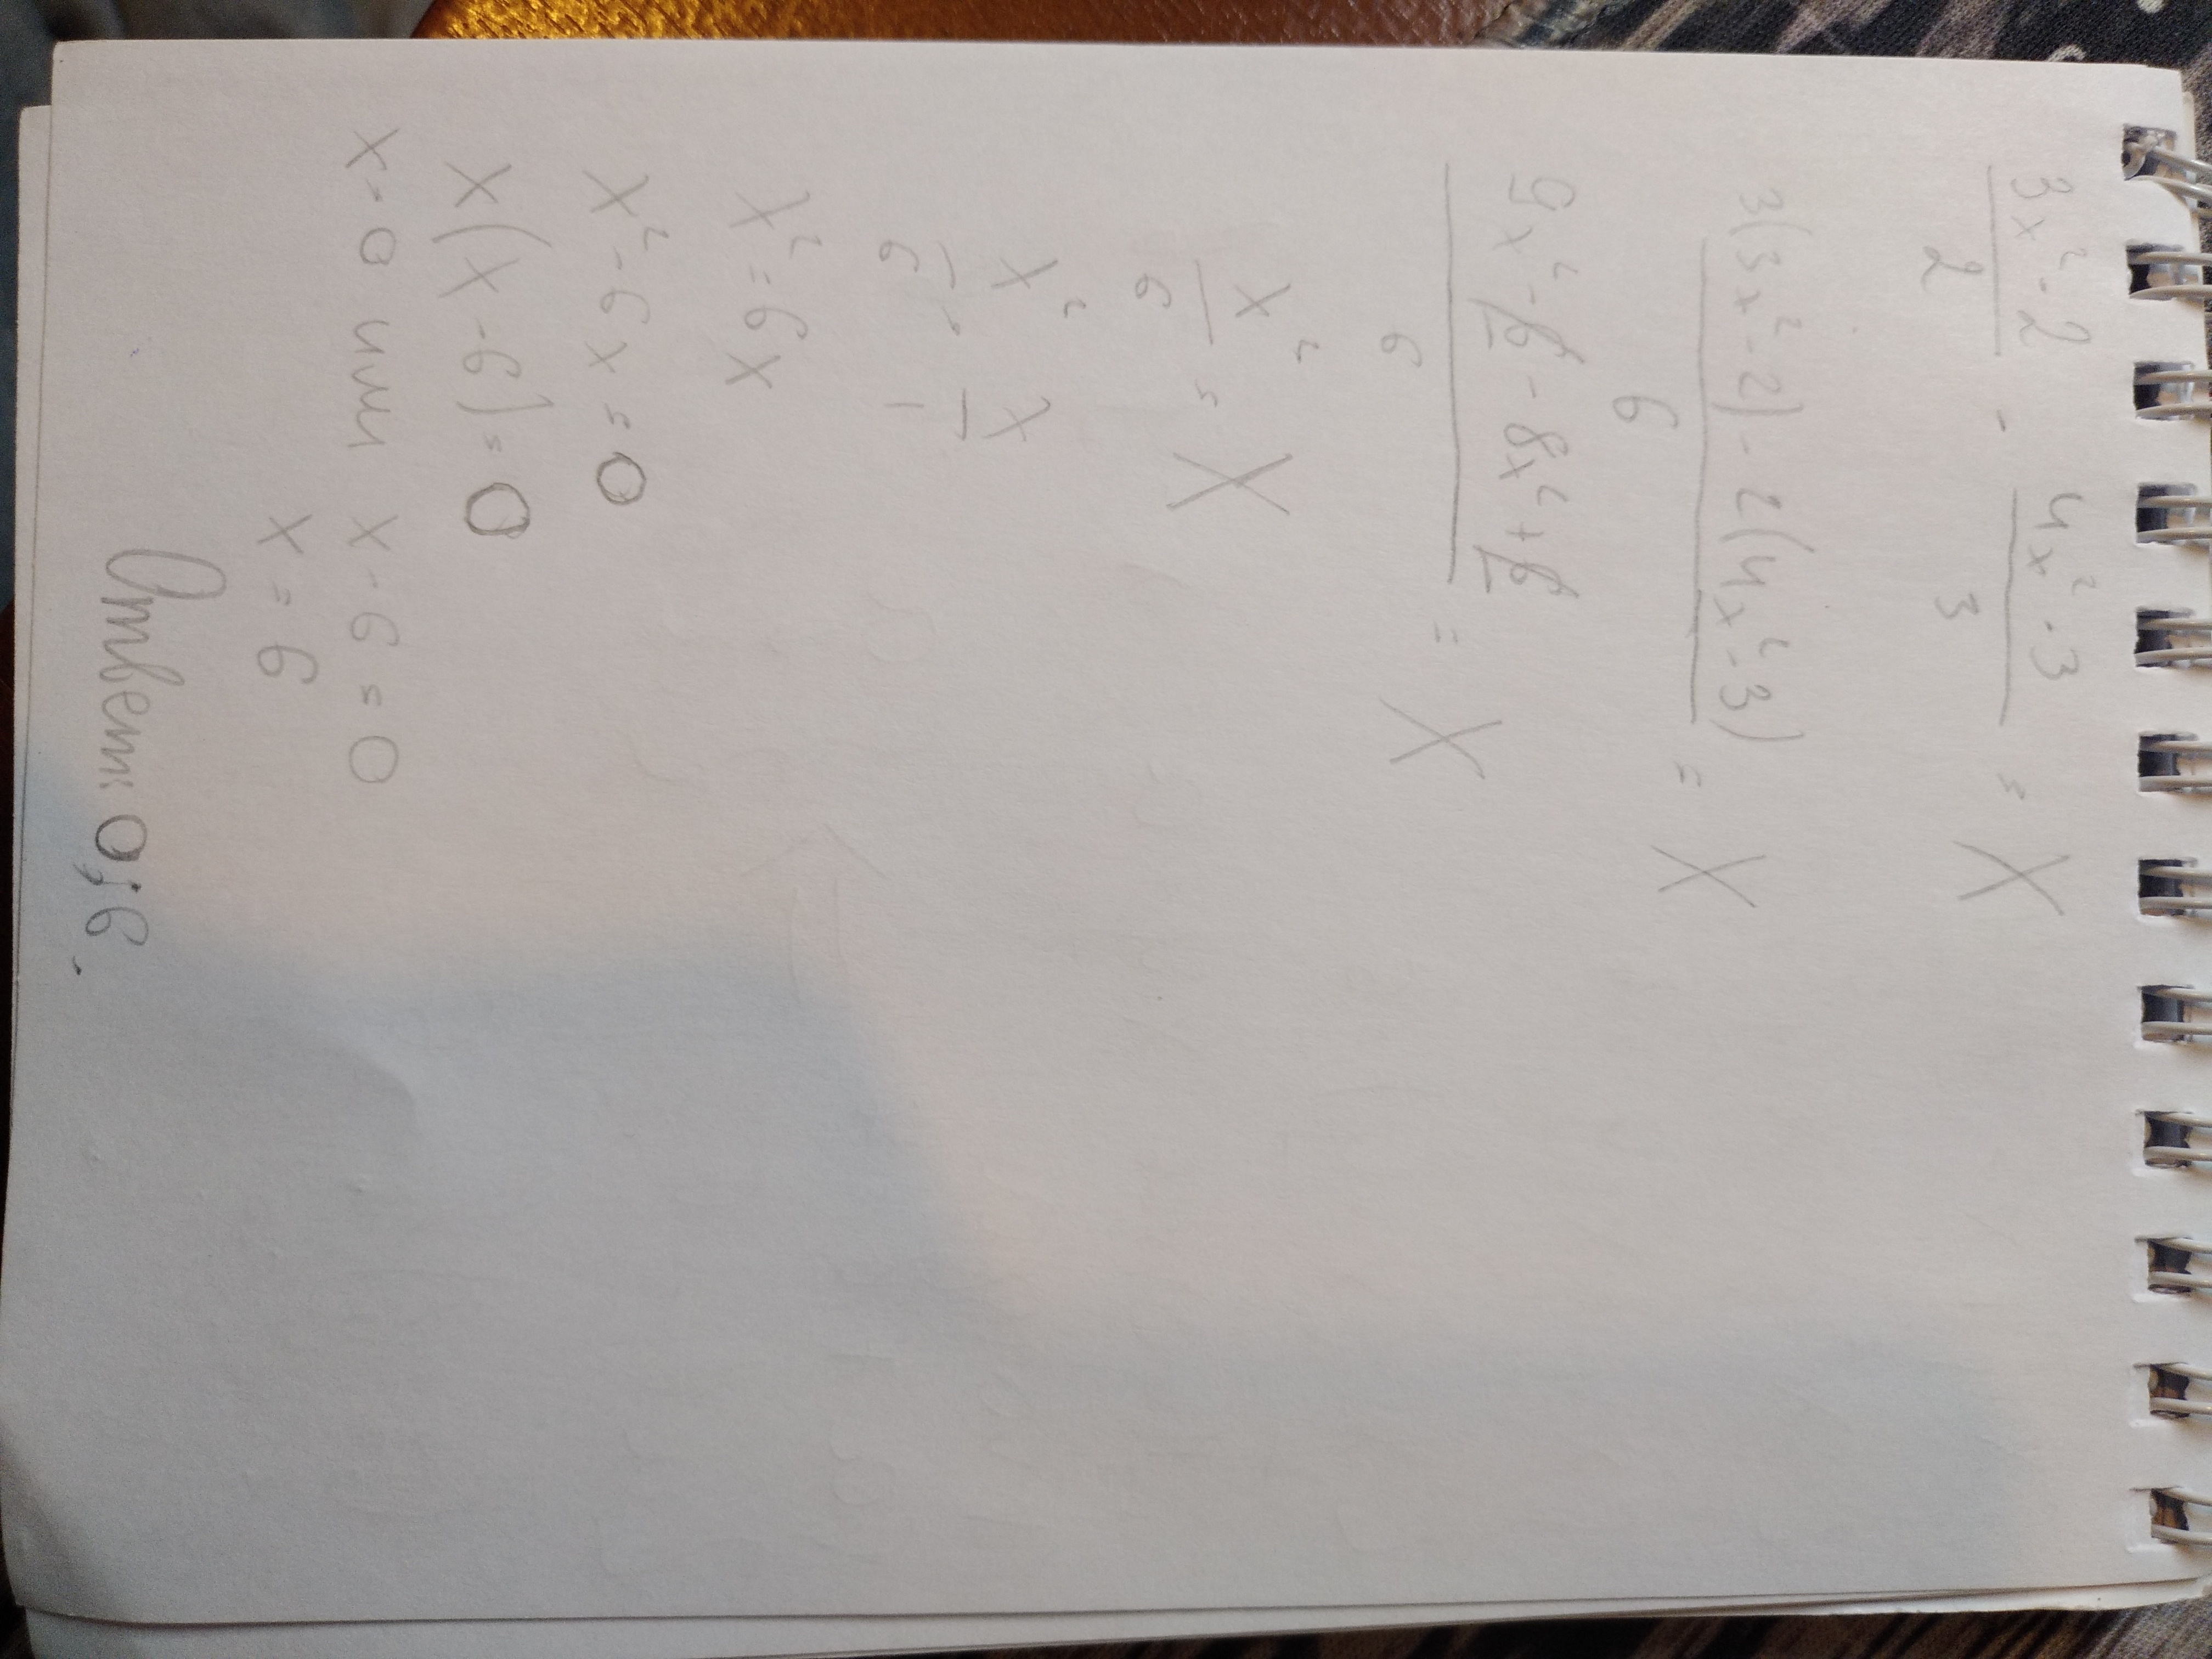 (3x² - 2)/2 - (4x² - 3)/3 = x
(3(3x² - 2) - 2(4x² - 3))/6 = x
(9x² - 6 - 8x² + 6)/6 = x
x²/6 = x
x²/6 = x/1
x² = 6x
x² - 6x = 0
x(x - 6) = 0
x = 0 или x - 6 = 0
x = 6
Ответ: 0; 6.